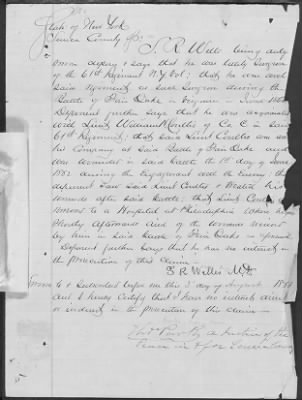 State of New York
Seneca County ss
S. R. Wells being duly
sworn deposes & says that he was lately Surgeon
of the 61st Regiment N.Y. Vol; that he was with
said Regiment as such Surgeon during the
Battle of Fair Oaks in Virginia in June 1862
Deponent further says that he was acquainted
with Lieut. of Co. C in said
61st Regiment; that said Lieut was with
his Company at said Battle of Fair Oaks and
was wounded in said Battle the 1st day of June
1862 during the Engagement with the Enemy; that
deponent saw said Lieut & treated his
wounds after said Battle; that Lieut
to a Hospital at Philadelphia
shortly afterwards and of the wounds received
by him in said Battle of Fair Oaks
Deponent further says that he has no interest in
the prosecution of this claim
S. R. Wells M.D.
Sworn to & Subscribed before me this 3 day of August
and I hereby Certify that I have no interest direct
or indirect in the prosecution of this claim
a Justice of the
Peace in & for Seneca County